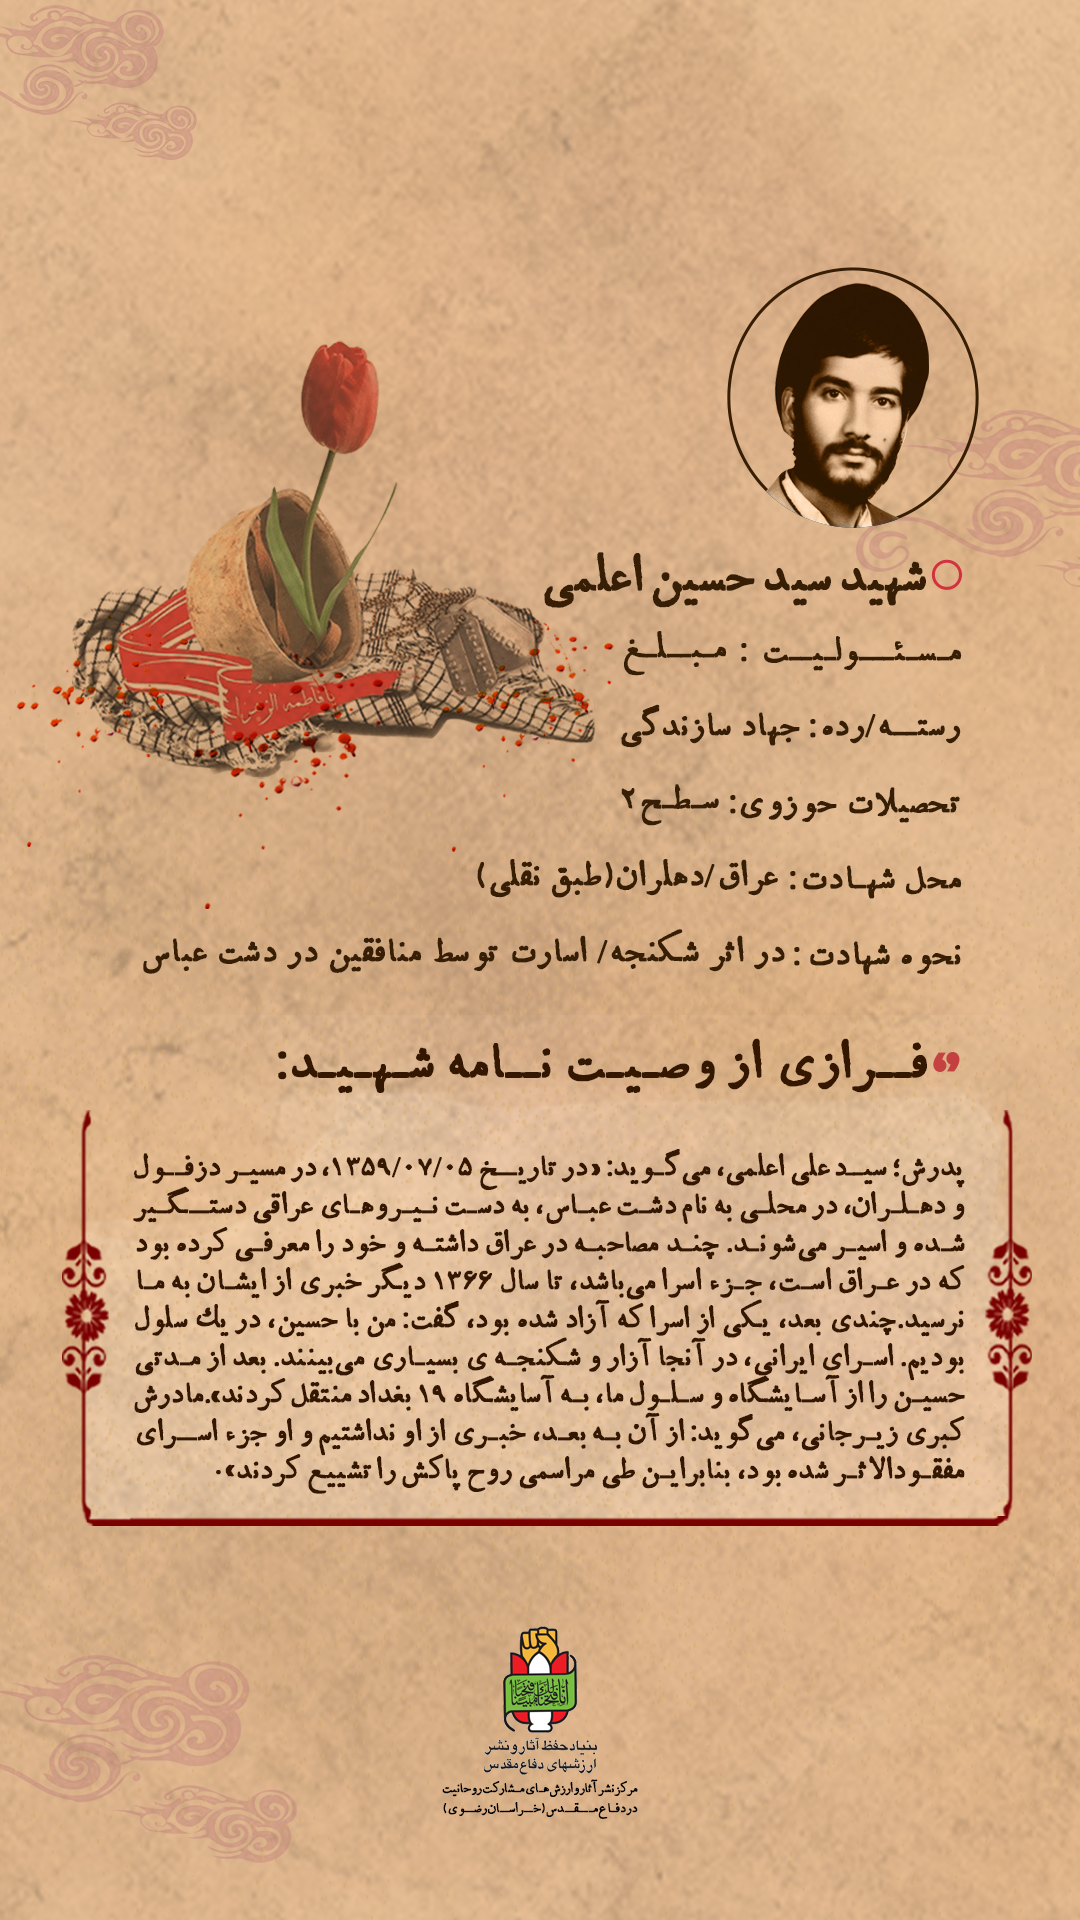 شهید سید حسین اعلمی
مسئولیت : مبلغ
رسته/رده: جهاد سازندگی
تحصیلات حوزوی: سطح۲
محل شهادت: عراق/دهلران(طبق نقلی)
نحوه شهادت: در اثر شکنجه/ اسارت توسط منافقین در دشت عباس
یا فاطمه الزهرا
فرازی از وصیت نامه شهید:
پدرش؛ سید علی اعلمی، می‌گوید: «در تاریخ ۱۳۵۹/۰۷/۰۵، در مسیر دزفول
و دهلران، در محلی به نام دشت عباس، به دست نیروهای عراقی دستگیر
شده و اسیر می‌شوند. چند مصاحبه در عراق داشته و خود را معرفی کرده بود
که در عراق است، جزء اسرا می‌باشد، تا سال ۱۳۶۶ دیگر خبری از ایشان به ما
نرسید.چندی بعد، یکی از اسرا که آزاد شده بود، گفت: من با حسین، در یك سلول
بودیم. اسرای ایرانی، در آنجا آزار و شکنجه ی بسیاری می‌بینند. بعد از مدتی
حسین را از آسایشگاه و سلول ما، به آسایشگاه ۱۹ بغداد منتقل کردند».مادرش
کبری زیرجانی، می‌گوید: از آن به بعد، خبری از او نداشتیم و او جزء اسرای
مفقودالاثر شده بود، بنابراین طی مراسمی روح پاکش را تشییع کردند».
انا فتحنا لك فتحا مبینا
بنیاد حفظ آثار و نشر
ارزشهای دفاع مقدس
مرکز نشر آثار و ارزش های مشارکت روحانیت
در دفاع مقدس (خراسان رضوی)